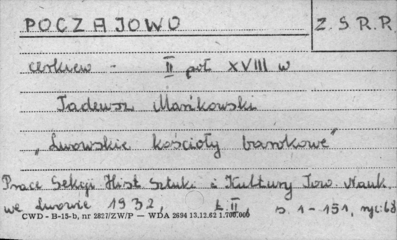 POCZAJOWO
Z.S.R.R.
cerkiew - II poł XVIII w
Tadeusz Mańkowski
"Lwowskie kościoły barokowe"
Prace Sekcji Hist. Sztuki i Kultury Tow. Nauk.
we Lwowie 1932, t. II, s. 1-151, ryc. 68
CWD - B-15-b, nr 2827/ZW/P — WDA 2694 13.12.62 1.700.000